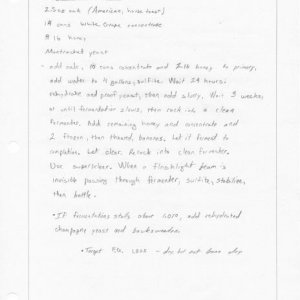 2.5 oz oak (American, house toast)
cans White Grape concentrate
# lb honey
Montrachet yeast
- add oak, cans concentrate and 2 lb honey to primary,
add water to 4 gallons, sulfite. Wait 24 hours.
rehydrate and proof yeast, then add slurry. Wait 3 weeks,
or until fermentation slows, then rack into a clean
fermenter. Add remaining honey and concentrate and
2 frozen, then thawed, bananas. Let it ferment to
completion. Let clear. Rerack into clean fermenter.
Use superkleer. When a flashlight beam is
invisible passing through fermenter, sulfite, stabilize,
then bottle.
• If fermentation stalls above 1.020, add rehydrated
champagne yeast and
• Target F.G. - dry but not bone dry